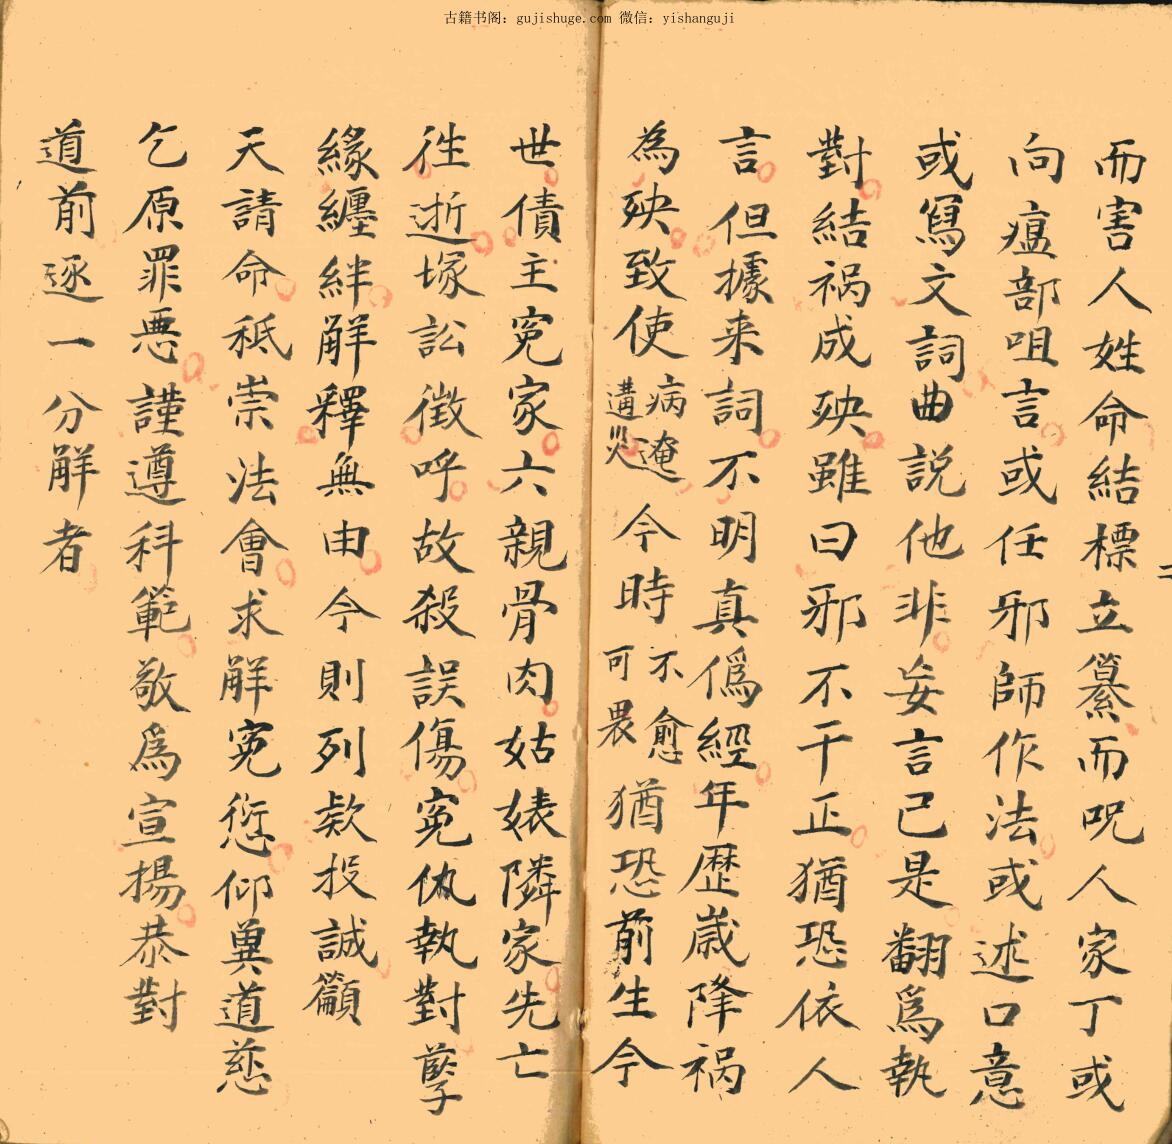 古籍书阁：gujishuge.com 微信：yishanguji
而害人姓命結標立纂而呪人家丁或
向瘟部咀言或任邪師作法或述口意
或寫文詞曲說他非妄言己是翻為執
對結祸成殃雖曰邪不干正猶恐依人
言但據来詞不明真僞經年歷歲降祸
為殃致使病遶遘災今時不愈可畏猶恐前生今
世債主冤家六親骨肉姑婊隣家先亡
徃逝塚訟徵呼故殺誤傷冤仇執對孽
緣纏絆解釋無由今則列欵投誠籲
天請命秪崇法會求解冤愆仰奠道慈
乞原罪惡謹遵科範敬爲宣揚恭對
道前逐一分解者